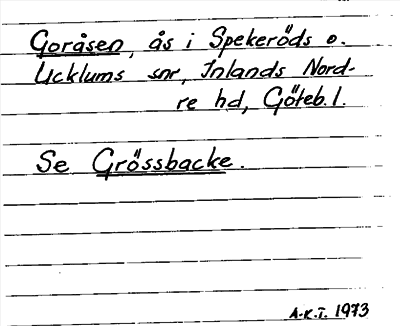 Goråsen, ås i Spekeröds o.
Ucklums snr, Inlands Nord-
re hd, Göteb. l.
Se Grössbacke.
A.K.T. 1973